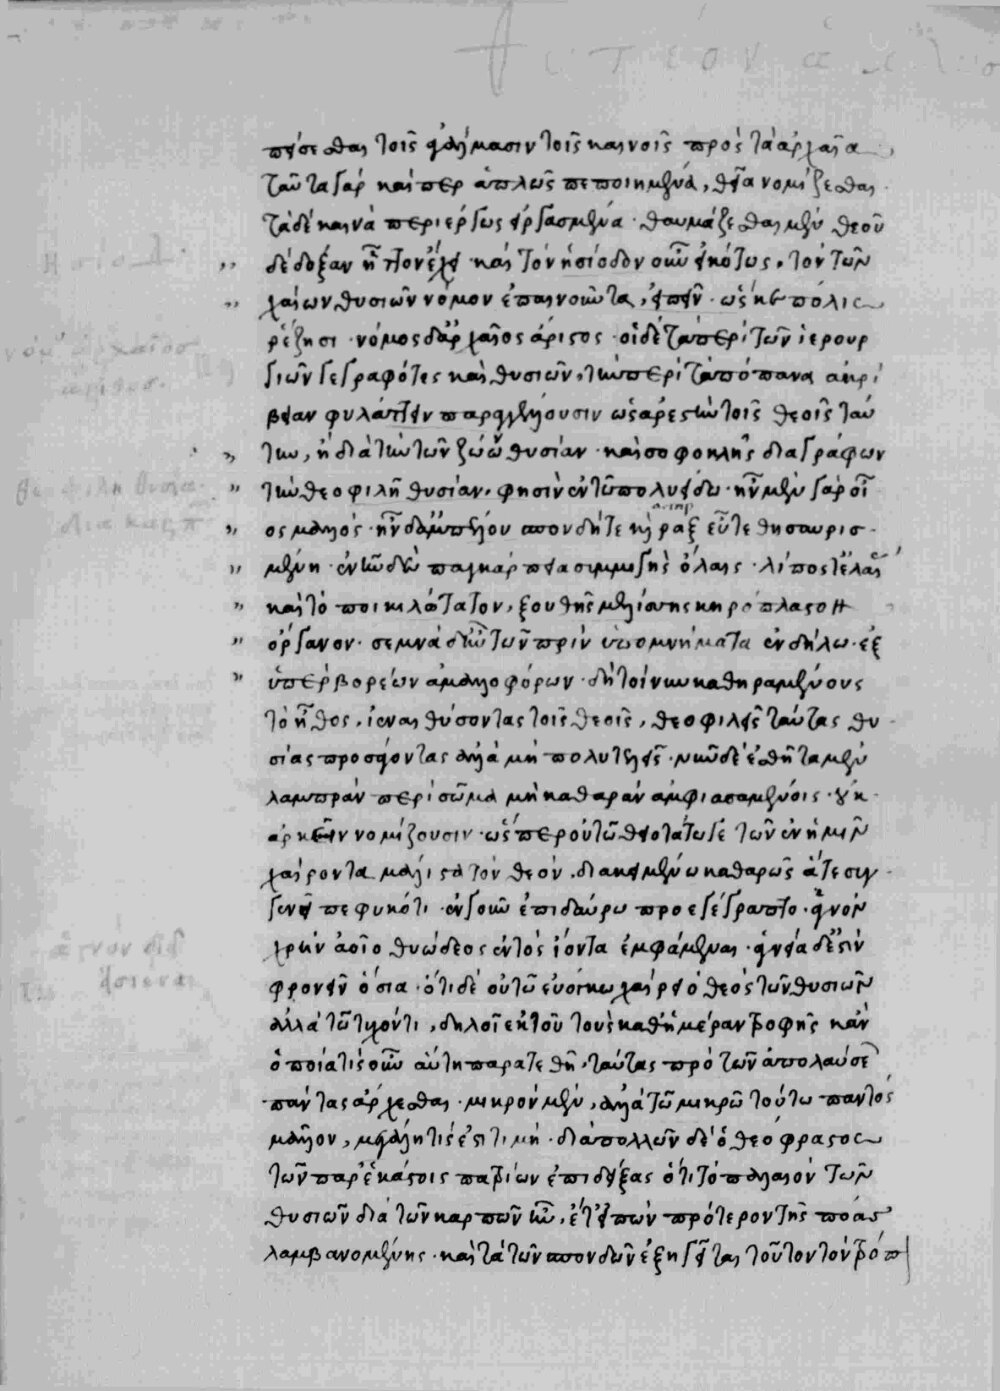 θυτέον
πείθεσθαι τοῖς ποιήμασιν τοῖς καινοῖς πρὸς τὰ ἀρχαῖα
ταῦτα γὰρ καίπερ ἁπλῶς πεποιημένα, θεῖα νομίζεσθαι
τὰ δὲ καινὰ περιέργως εἰργασμένα θαυμάζεσθαι μὲν θεοῦ
Ἡσιόδ
δὲ δόξαν ἧττον ἔχειν καὶ τὸν ἡσίοδον οὖν εἰκότως, τὸν τῶν
χαίων θυσιῶν νόμον ἐπαινοῦντα, εἰπεῖν ὥς κε πόλις
νόμ ἀρχαῖοσ
ῥέζησι νόμος δ' ἀρχαῖος ἄριστος οἱ δὲ τὰ περὶ τῶν ἱερουρ
ἄριστοσ
γιῶν γεγραφότες καὶ θυσιῶν, τὴν περὶ τὰ πόπανα ἀκρί
βειαν φυλάττειν παραγγέλλουσιν ὡς ἀρεστὴν τοῖς θεοῖς ταύ
την, ἢ διὰ τὴν τῶν ζώων θυσίαν καὶ σοφοκλῆς διαγράφων
θεοφιλὴ θυσία
τὴν θεοφιλῆ θυσίαν, φησὶν ἐν τῷ πολυείδω ἦν μὲν γὰρ οἰ
ος μαλλὸς ἦν δ' ἀμπέλου σπονδή τε καὶ ῥὰξ εὖ τεθησαυρισ
μένη ἐνῆν δὲ παγκάρπεια συμμιγὴς ὀλαῖς λίπος τ' ἐλαί
καὶ τὸ ποικιλώτατον, ξουθῆς μελίσσης κηρόπλαστον
ὄργανον σεμνὰ δ' ἦν τῶν πρὶν ὑπομνήματα ἐν δήλω ἐξ
ὑπερβορέων ἀμαλλοφόρων δεῖ τοίνυν καθηραμένους
τὸ ἦθος, ἰέναι θύσοντας τοῖς θεοῖς, θεοφιλεῖς ταύτας θυ
σίας προσάγοντας ἀλλὰ μὴ πολυτελεῖς νῦν δὲ ἐσθῆτα μὲν
λαμπρὰν περὶ σῶμα μὴ καθαρὸν ἀμφιασαμένοις οὐκ
ἀρκεῖν νομίζουσιν
χαίροντα μάλιστα τὸν θεόν, διακειμένω καθαρῶς ἅτε συγ
γενεῖ πεφυκότι ἐν γοῦν ἐπιδαύρω προεγέγραπτο ἁγνὸν
ἁγνὸν
χρὴν ναοῖο θυώδεος ἐντὸς ἰόντα ἔμμεναι ἁγνεία δ' ἐστὶν
φρονεῖν ὅσια ὅτι δὲ οὐ τῶ ὄγκω χαίρει ὁ θεὸς τῶν θυσιῶν
ἀλλὰ τῶ τυχόντι, δηλοῖ ἐκ τοῦ τοὺς καθ' ἡμέραν τροφῆς κἂν
ὁποία τις οὖν αὕτη παρατεθῆ, ταύτας πρὸ τῶν ἀπολαύσε
πάντας ἄρχεσθαι μικρὸν μὲν, ἀλλὰ τῶ μικρῶ τούτω παντὸς
μᾶλλον, μεγάλη τίς ἐστι τιμή διὰ πολλῶν δὲ ὁ θεόφραστος
τῶν παρ' ἑκάστοις πατρίων ἐπιδείξας ὅτι τὸ παλαιὸν τῶν
θυσιῶν διὰ τῶν καρπῶν ἦν, ἔτ' εἰπὼν πρότερον τῆς πόας
λαμβανομένης καὶ τὰ τῶν σπονδῶν ἐξηγεῖται τοῦτον τὸν τρόπ